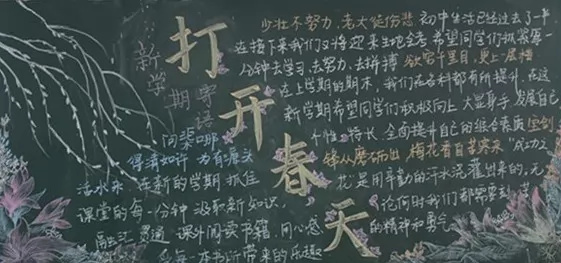 打开春天
新学期寄语
少壮不努力,老大徒伤悲 初中生活已经过去了一半
在接下来我们又将迎来生地会考希望同学们抓紧每一
分钟去学习、去努力、去拼搏 欲穷千里目,更上一层楼
在上学期的期末,我们在各科都有所提升,在这
新学期希望同学们积极向上 大显身手 发展自己
个性 特长 全面提升自己的综合素质 宝剑
锋从磨砺出 梅花香自苦寒来 "成功之
花是用辛勤的汗水浇灌出来的,无
论何时我们都需要
的精神和勇气
问渠哪
得清如许 为有源头
活水来 在新的学期 抓住
课堂的每一分钟 汲取新知识,
融汇贯通 课外阅读书籍 用心感
每一本书所带来的乐趣